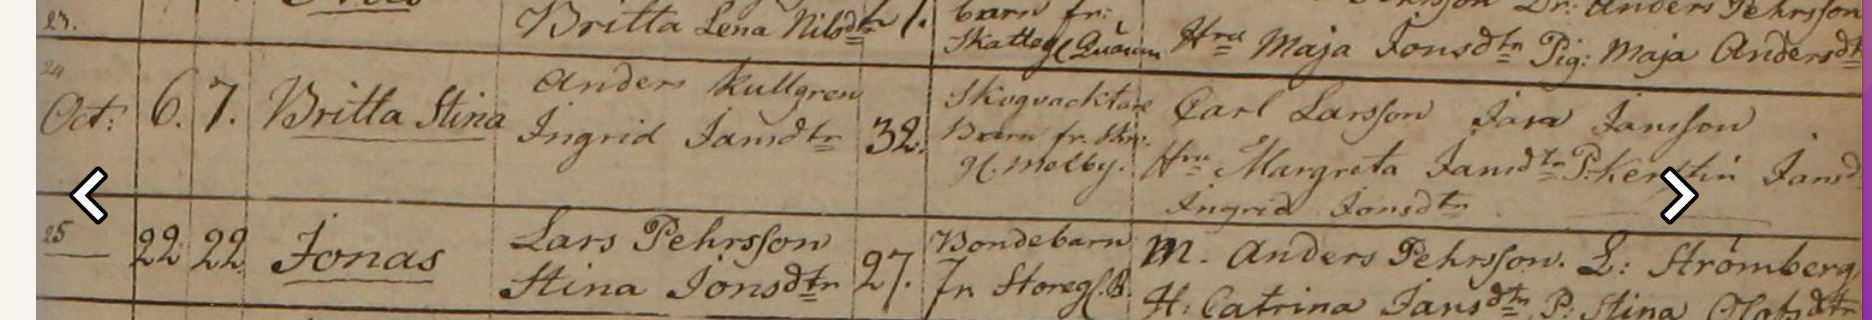 23.
Britta Lena Nilsdtr 1.
barn fr:
Skatteg Quarn
Dr: Anders Pehrsson
Hru Maja Jonsdtr Pig: Maja Andersdt
24
Oct: 6. 7. Britta Stina
Anders Kullgren
Ingrid Jansdtr 32.
Skogvacktare
Barn fr.
H. Melby.
Carl Larsson Jansson
Hru Margreta Jansdtr P: Kerstin Jansd
Ingrid Jonsdtr
25
22 22 Jonas
Lars Pehrsson
Stina Jonsdtr 27.
Bondebarn
fr Storeg. B.
M. Anders Pehrsson. L: Strömberg
H: Catrina Jansdtr P: Stina Olofsdtr